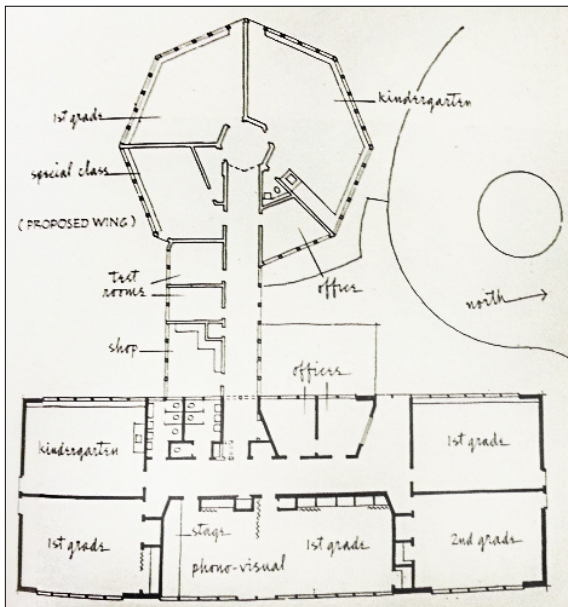 1st grade
kindergarten
special class
(PROPOSED WING)
test
rooms
office
north
shop
offices
kindergarten
1st grade
1st grade
stage
phono-visual
1st grade
2nd grade